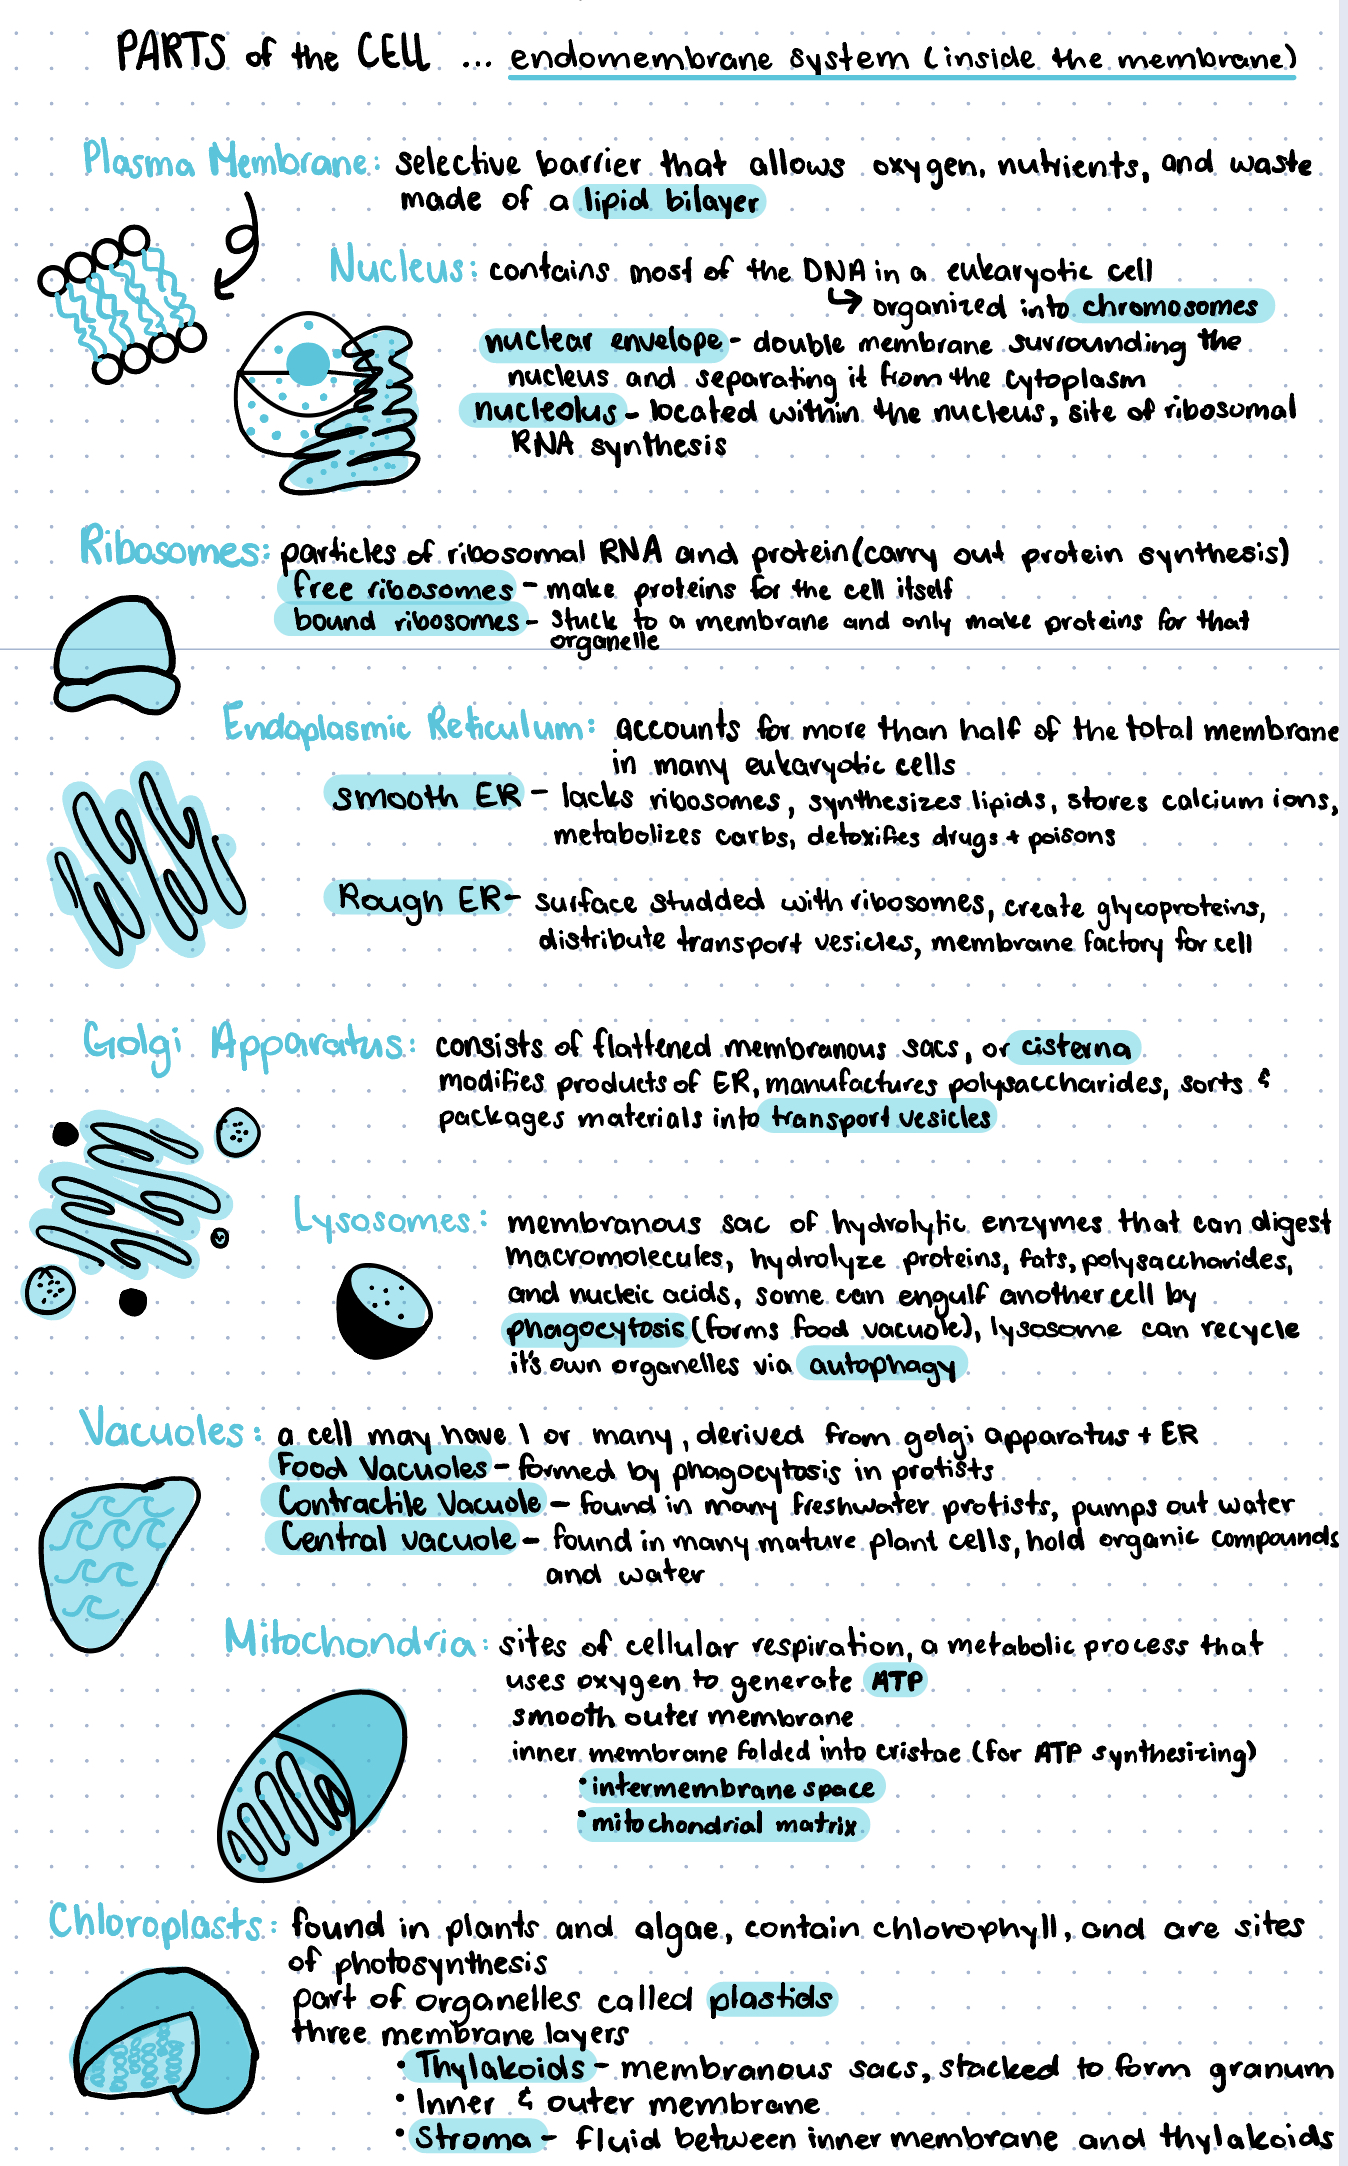 PARTS of the CELL ... endomembrane system (inside the membrane)
Plasma Membrane: selective barrier that allows oxygen, nutrients, and waste
made of a lipid bilayer
Nucleus: contains most of the DNA in a eukaryotic cell
↳ organized into chromosomes
nuclear envelope - double membrane surrounding the
nucleus and separating it from the cytoplasm
nucleolus - located within the nucleus, site of ribosomal
RNA synthesis
Ribosomes: particles of ribosomal RNA and protein (carry out protein synthesis)
free ribosomes - make proteins for the cell itself
bound ribosomes - stuck to a membrane and only make proteins for that
organelle
Endoplasmic Reticulum: accounts for more than half of the total membrane
in many eukaryotic cells
smooth ER - lacks ribosomes, synthesizes lipids, stores calcium ions,
metabolizes carbs, detoxifies drugs + poisons
Rough ER - surface studded with ribosomes, create glycoproteins,
distribute transport vesicles, membrane factory for cell
Golgi Apparatus: consists of flattened membranous sacs, or cisterna
modifies products of ER, manufactures polysaccharides, sorts &
packages materials into transport vesicles
Lysosomes: membranous sac of hydrolytic enzymes that can digest
macromolecules, hydrolyze proteins, fats, polysaccharides,
and nucleic acids, some can engulf another cell by
phagocytosis (forms food vacuole), lysosome can recycle
it's own organelles via autophagy
Vacuoles: a cell may have 1 or many, derived from golgi apparatus + ER
Food Vacuoles - formed by phagocytosis in protists
Contractile Vacuole - found in many freshwater protists, pumps out water
Central vacuole - found in many mature plant cells, hold organic compounds
and water
Mitochondria: sites of cellular respiration, a metabolic process that
uses oxygen to generate ATP
smooth outer membrane
inner membrane folded into cristae (for ATP synthesizing)
• intermembrane space
• mitochondrial matrix
Chloroplasts: found in plants and algae, contain chlorophyll, and are sites
of photosynthesis
part of organelles called plastids
three membrane layers
• Thylakoids - membranous sacs, stacked to form granum
• Inner & outer membrane
• Stroma - fluid between inner membrane and thylakoids